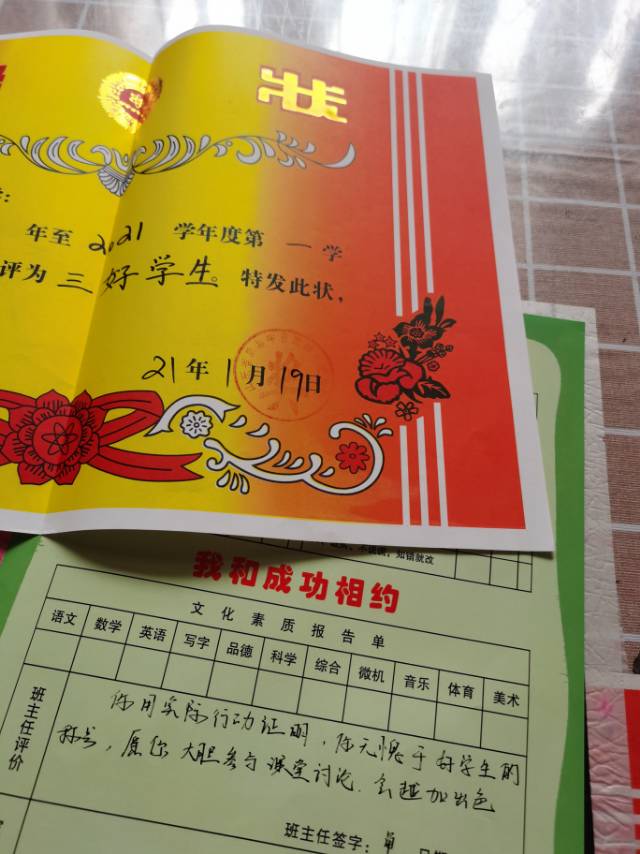 状
年至 2021 学年度第 一 学
评为 三好学生。特发此状,
21年1月19日
知错就改
我和成功相约
文化素质报告单
语文 数学 英语 写字 品德 科学 综合 微机 音乐 体育 美术
班主任评价
你用实际行动证明,你无愧于好学生的
称号,愿你大胆参与课堂讨论.会越加出色
班主任签字: